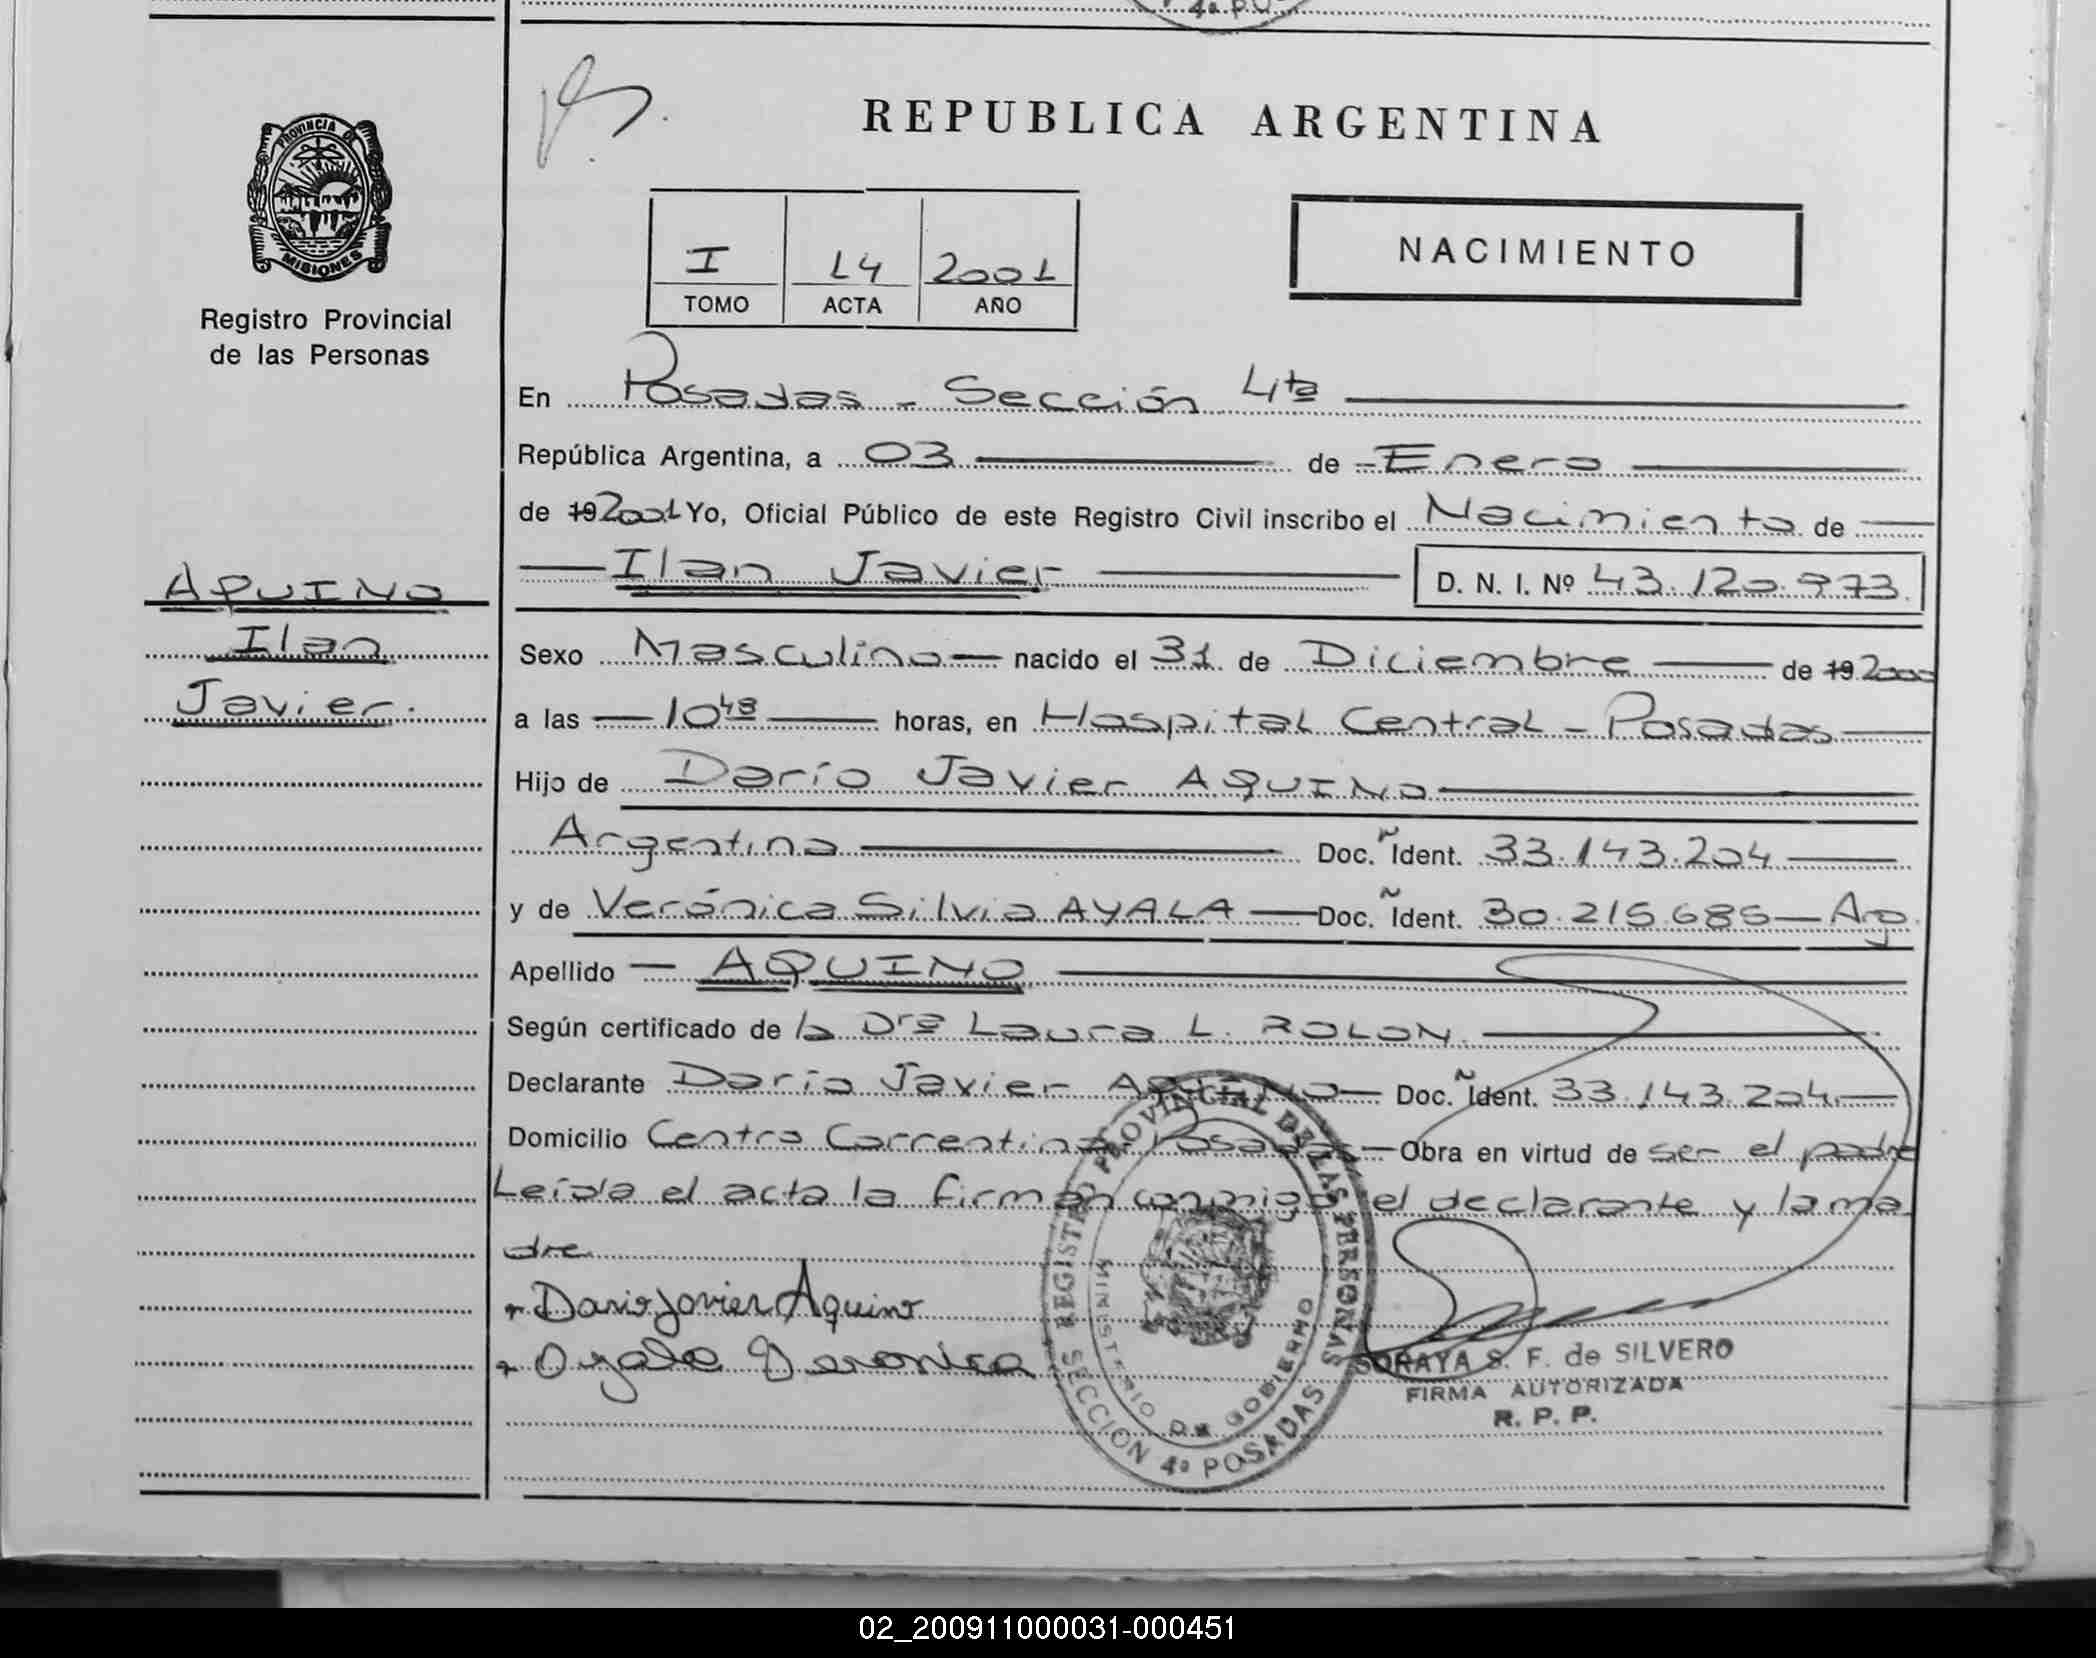 4a P.O
REPUBLICA ARGENTINA
PROVINCIA DE
MISIONES
Registro Provincial
de las Personas
I 14 2001
TOMO ACTA AÑO
NACIMIENTO
En Posadas - Sección 4ta
República Argentina, a 03 de Enero
de 19 2001 Yo, Oficial Público de este Registro Civil inscribo el Nacimiento de
Ilan Javier D. N. I. Nº 43.120.973
AQUINO
Ilan
Javier.
Sexo Masculino nacido el 31 de Diciembre de 19 2000
a las 10 48 horas, en Hospital Central - Posadas
Hijo de Darío Javier AQUINO
Argentina Doc. Ident. 33.143.204
y de Verónica Silvia AYALA Doc. Ident. 30.215.685 - Arg.
Apellido AQUINO
Según certificado de la Dra Laura L. ROLON.
Declarante Darío Javier AQUINO Doc. Ident. 33.143.204
Domicilio Centro Correntino. Posadas Obra en virtud de ser el padre
Leída el acta la firman conmigo el declarante y la ma
dre
Dario Javier Aquino
Ayala Veronica
REGISTRO PROVINCIAL DE LAS PERSONAS
MINISTERIO DE GOBIERNO
SECCION 4a POSADAS
SORAYA S. F. de SILVERO
FIRMA AUTORIZADA
R. P. P.
02_200911000031-000451